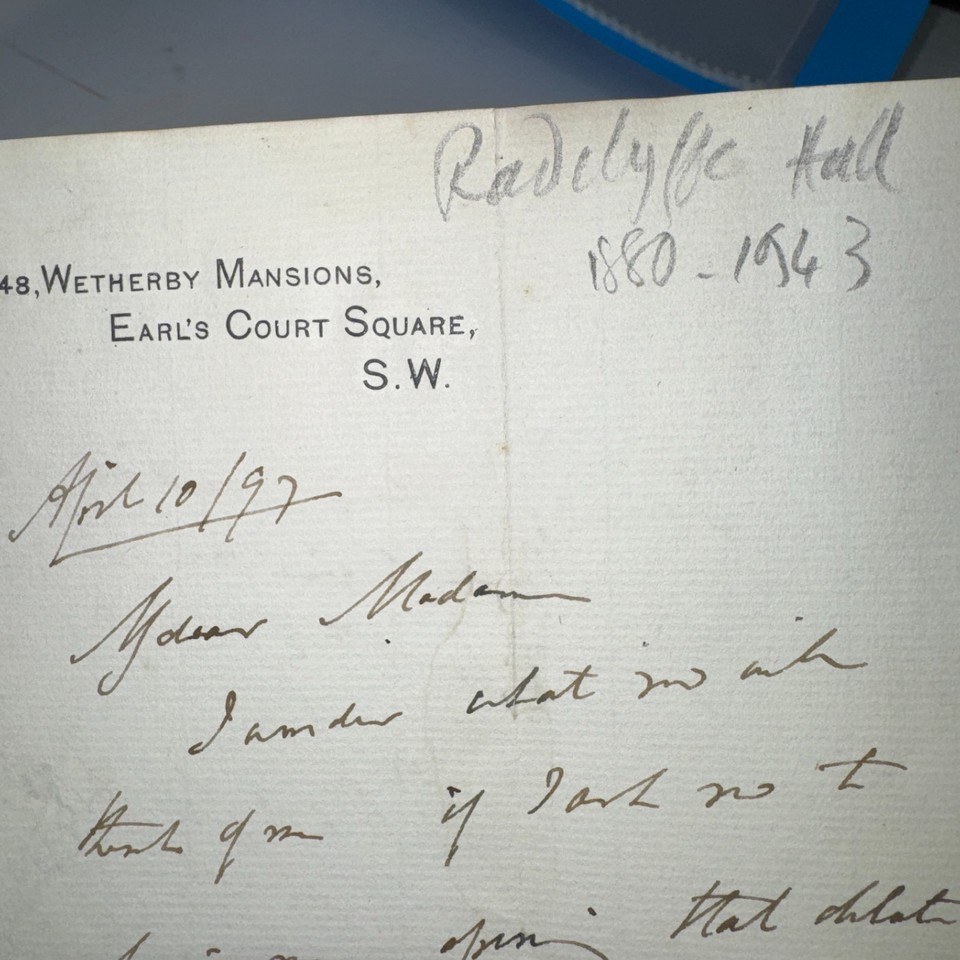 Radclyffe Hall
1880-1943
48, WETHERBY MANSIONS,
EARL'S COURT SQUARE,
S.W.
April 10/97
My dear Madam
I wonder what you will
think of me if I ask you to
that debate